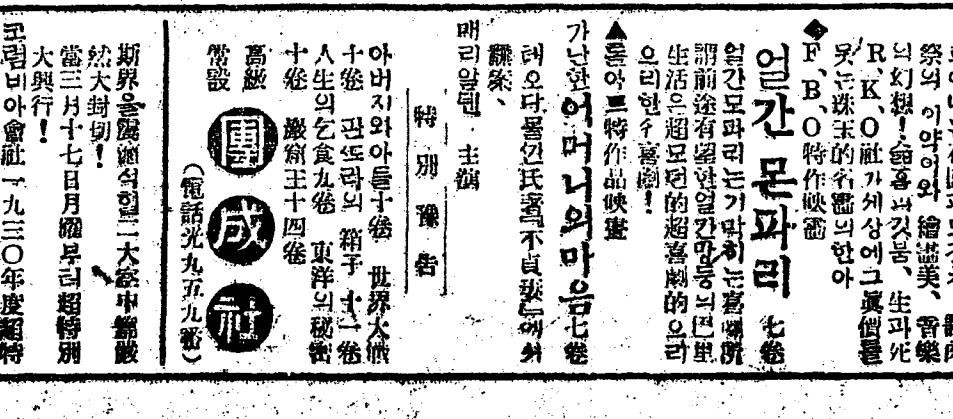 祭의 이약이와 繪畵美、音樂
의幻想！슯흠과깃붐、生과死
R、K、O社가세상에그眞價를
뭇는珠玉的名畵의한아
◆F、B、O特作映畵
얼간몬파리 七卷
얼간모파리는기막히는喜劇所
謂前途有望한얼간망둥의巴里
生活은超모던的超喜劇的으리
으리한수喜劇！
▲돌아트特作品映畫
가난한어머니의마음七卷
테오다・몰인氏著『不貞孩』에서
脚色、
매리알덴・主演
特別豫告
아버지와아들十卷 世界大戰
十卷 판도라의箱子十一卷
人生의乞食九卷 東洋의秘密
十卷 巖窟王十四卷
高級
常設
團成社
（電話光九五九番）
斯界을震동식힐二大
然大封切！
當三月十七日月曜부터超特別
大興行！
코럼비아會社一九三〇年度超特